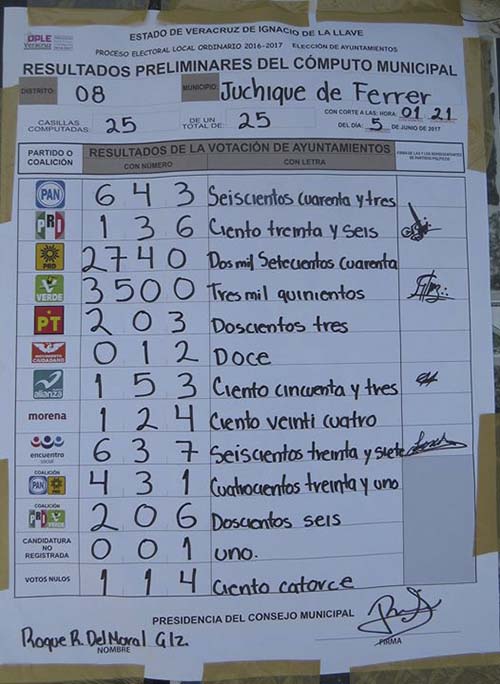 OPLE
Veracruz
ESTADO DE VERACRUZ DE IGNACIO DE LA LLAVE
PROCESO ELECTORAL LOCAL ORDINARIO 2016-2017 ELECCIÓN DE AYUNTAMIENTOS
RESULTADOS PRELIMINARES DEL CÓMPUTO MUNICIPAL
DISTRITO: 08 MUNICIPIO Juchique de Ferrer
CASILLAS COMPUTADAS 25 DE UN TOTAL DE: 25 CON CORTE A LAS: HORA: 01 21
DEL DÍA: 5 DE JUNIO DE 2017
PARTIDO O COALICIÓN RESULTADOS DE LA VOTACIÓN DE AYUNTAMIENTOS
CON NÚMERO CON LETRA
PAN 6 4 3 Seiscientos cuarenta y tres
PRI 1 3 6 Ciento treinta y seis
PRD 2 7 4 0 Dos mil Setecientos cuarenta
VERDE 3 5 0 0 Tres mil quinientos
PT 2 0 3 Doscientos tres
MOVIMIENTO CIUDADANO 0 1 2 DOCE
alianza 1 5 3 Ciento cincuenta y tres
morena 1 2 4 Ciento veinti cuatro
encuentro social 6 3 7 Seiscientos treinta y siete
COALICIÓN PAN PRD 4 3 1 Cuatrocientos treinta y uno
COALICIÓN PRI VERDE 2 0 6 Doscientos seis
CANDIDATURA NO REGISTRADA 0 0 1 uno.
VOTOS NULOS 1 1 4 Ciento catorce
PRESIDENCIA DEL CONSEJO MUNICIPAL
Roque R. Del Moral Glz.
NOMBRE FIRMA